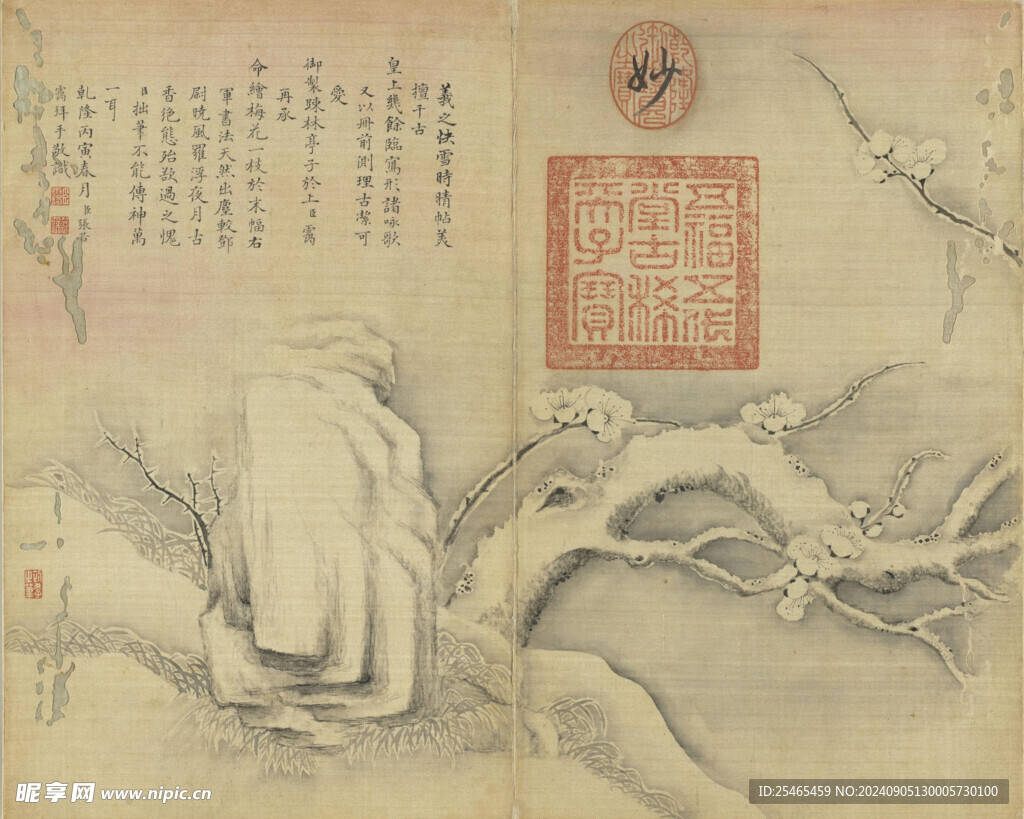 妙
乾隆御覽之寶
五福五代
堂古稀
天子寶
羲之快雪時晴帖美
擅千古
皇上幾餘臨寫形諸咏歌
又以冊前側理古潔可
愛
御製踈林亭子於上臣靄
再承
命繪梅花一枝於末幅右
軍書法天然出塵較鄧
尉曉風羅浮夜月古
香絶態殆欲過之愧
臣拙筆不能傳神萬
一耳
乾隆丙寅春月臣張若
靄拜手敬識
昵享网 www.nipic.cn
ID:25465459 NO:20240905130005730100